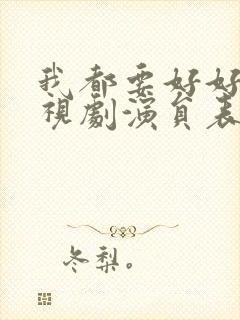 我都要好好
視劇演員表
冬梨。